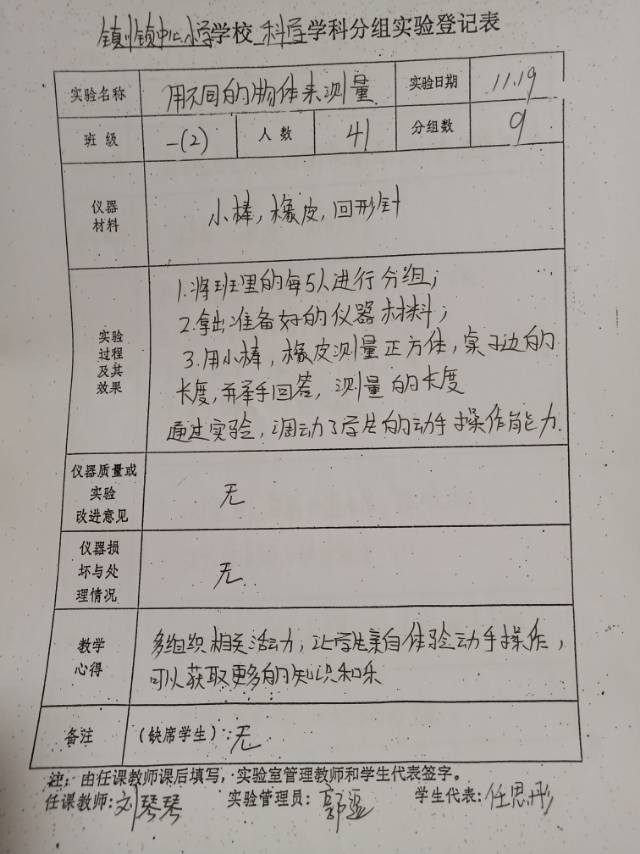 镇川镇中心小学学校 科学 学科分组实验登记表
实验名称 用不同的物体来测量 实验日期 11.19
班 级 一(2) 人 数 41 分组数 9
仪器
材料
小棒，橡皮，回形针
实验
过程
及其
效果
1.将班里的每5人进行分组；
2.拿出准备好的仪器材料；
3.用小棒，橡皮测量正方体，桌子边的
长度，并举手回答，测量的长度
通过实验，调动了学生的动手操作能力.
仪器质量或
实验
改进意见
无
仪器损
坏与处
理情况
无.
教学
心得
多组织相关活动，让学生亲自体验动手操作，
可以获取更多的知识和乐
备注 (缺席学生)：无
注：由任课教师课后填写，实验室管理教师和学生代表签字。
任课教师：刘琴琴 实验管理员：郭 学生代表：任思彤